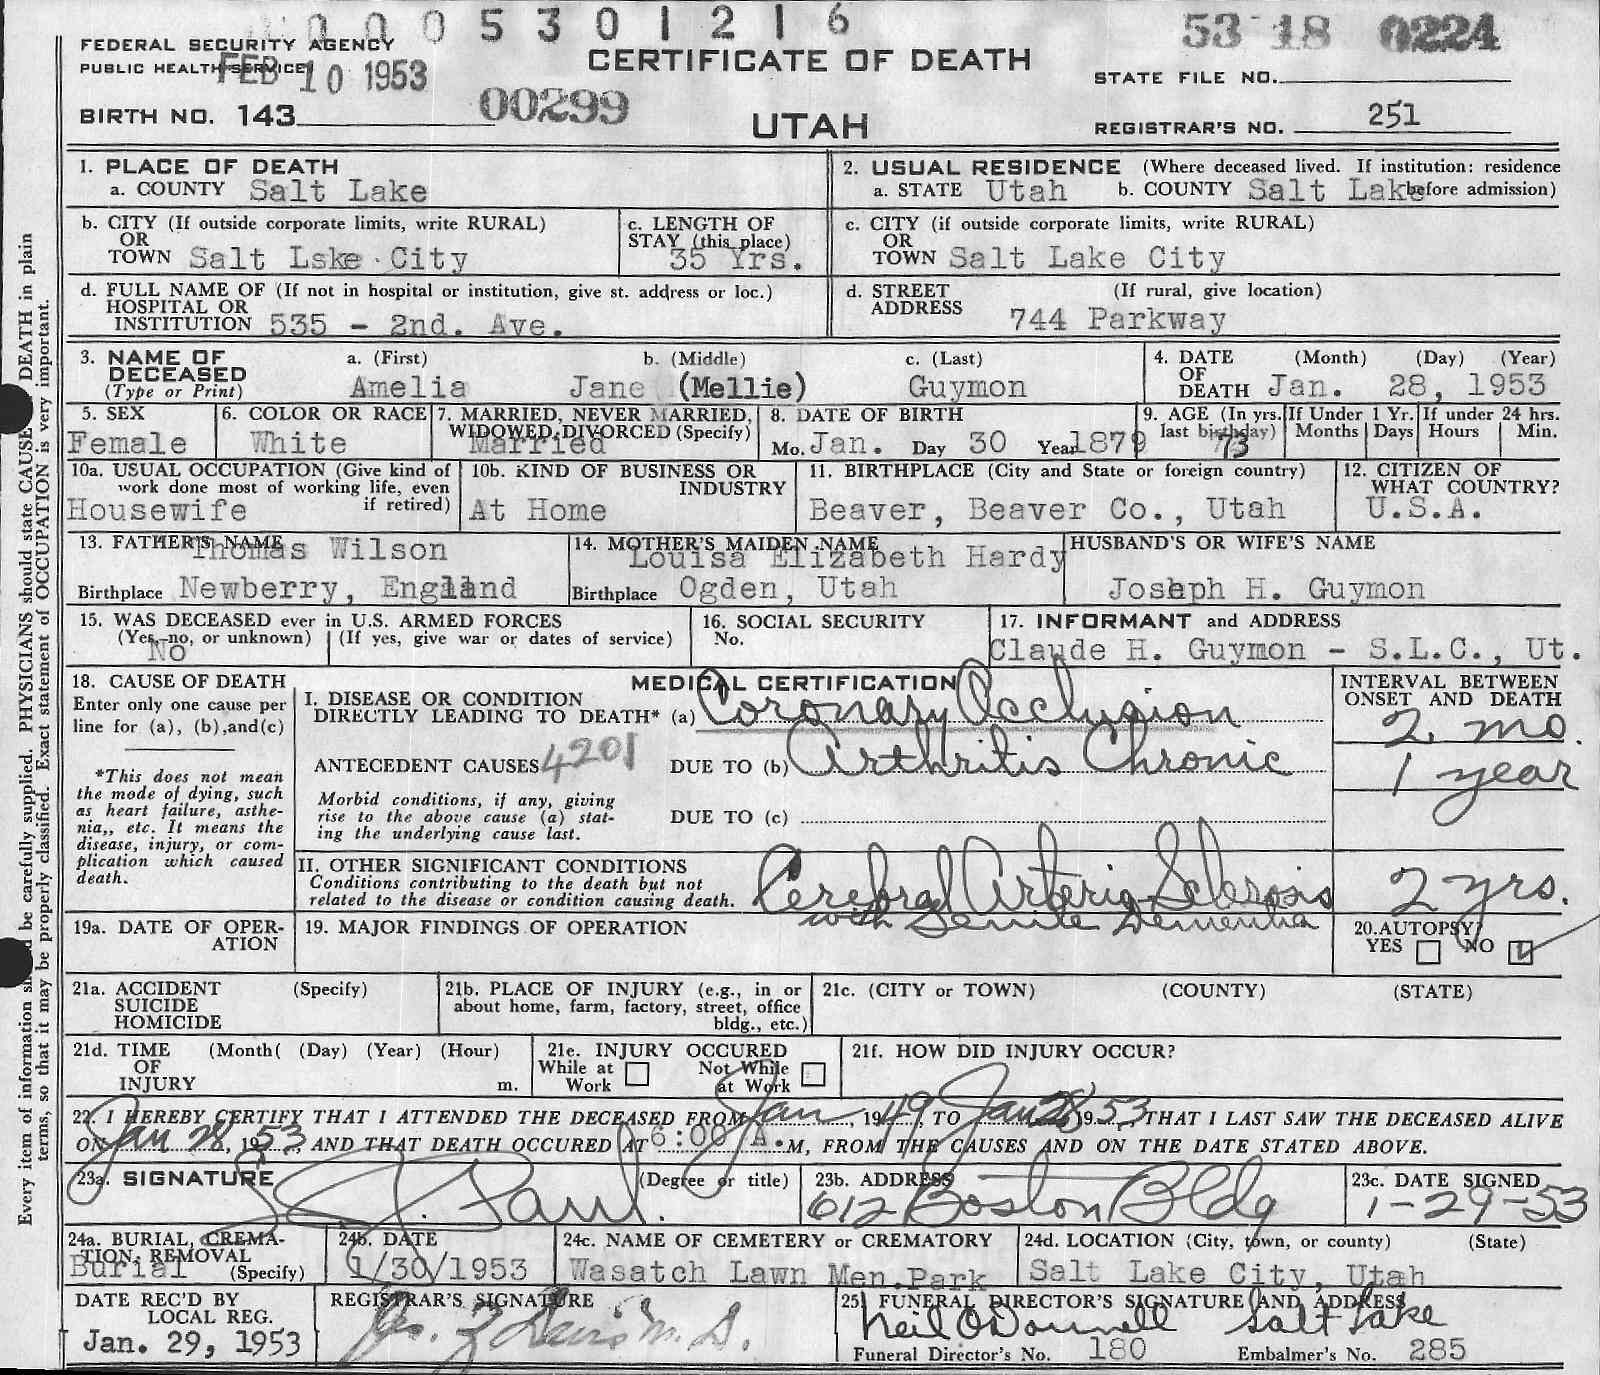 0 0 0 5 3 0 1 2 1 6
53 18 0224
FEDERAL SECURITY AGENCY
PUBLIC HEALTH SERVICE
FEB 10 1953
CERTIFICATE OF DEATH
STATE FILE NO.
BIRTH NO. 143
00299
UTAH
REGISTRAR'S NO. 251
1. PLACE OF DEATH
a. COUNTY Salt Lake
2. USUAL RESIDENCE (Where deceased lived. If institution: residence before admission)
a. STATE Utah b. COUNTY Salt Lake
b. CITY (If outside corporate limits, write RURAL)
OR
TOWN Salt Lske City
c. LENGTH OF
STAY (this place)
35 Yrs.
c. CITY (if outside corporate limits, write RURAL)
OR
TOWN Salt Lake City
d. FULL NAME OF (If not in hospital or institution, give st. address or loc.)
HOSPITAL OR
INSTITUTION 535 - 2nd. Ave.
d. STREET (If rural, give location)
ADDRESS 744 Parkway
3. NAME OF
DECEASED
(Type or Print)
a. (First) b. (Middle) c. (Last)
Amelia Jane (Mellie) Guymon
4. DATE (Month) (Day) (Year)
OF
DEATH Jan. 28, 1953
5. SEX
Female
6. COLOR OR RACE
White
7. MARRIED, NEVER MARRIED,
WIDOWED, DIVORCED (Specify)
Married
8. DATE OF BIRTH
Mo. Jan. Day 30 Year 1879
9. AGE (In yrs. last birthday)
73
If Under 1 Yr.
Months Days
If under 24 hrs.
Hours Min.
10a. USUAL OCCUPATION (Give kind of
work done most of working life, even
if retired)
Housewife
10b. KIND OF BUSINESS OR
INDUSTRY
At Home
11. BIRTHPLACE (City and State or foreign country)
Beaver, Beaver Co., Utah
12. CITIZEN OF
WHAT COUNTRY?
U.S.A.
13. FATHER'S NAME
Thomas Wilson
Birthplace Newberry, England
14. MOTHER'S MAIDEN NAME
Louisa Elizabeth Hardy
Birthplace Ogden, Utah
HUSBAND'S OR WIFE'S NAME
Joseph H. Guymon
15. WAS DECEASED ever in U.S. ARMED FORCES
(Yes, no, or unknown) (If yes, give war or dates of service)
No
16. SOCIAL SECURITY
No.
17. INFORMANT and ADDRESS
Claude H. Guymon - S.L.C., Ut.
18. CAUSE OF DEATH
Enter only one cause per
line for (a), (b),and(c)
*This does not mean
the mode of dying, such
as heart failure, asthe-
nia,, etc. It means the
disease, injury, or com-
plication which caused
death.
MEDICAL CERTIFICATION
I. DISEASE OR CONDITION
DIRECTLY LEADING TO DEATH* (a) Coronary Occlusion
ANTECEDENT CAUSES 4201 DUE TO (b) Arthritis Chronic
Morbid conditions, if any, giving
rise to the above cause (a) stat-
ing the underlying cause last.
DUE TO (c)
II. OTHER SIGNIFICANT CONDITIONS
Conditions contributing to the death but not
related to the disease or condition causing death.
Cerebral Arterio-Sclerosis
with Senile Dementia
INTERVAL BETWEEN
ONSET AND DEATH
2 mo.
1 year
2 yrs.
19a. DATE OF OPER-
ATION
19. MAJOR FINDINGS OF OPERATION
20. AUTOPSY?
YES NO
21a. ACCIDENT (Specify)
SUICIDE
HOMICIDE
21b. PLACE OF INJURY (e.g., in or
about home, farm, factory, street, office
bldg., etc.)
21c. (CITY or TOWN) (COUNTY) (STATE)
21d. TIME (Month( (Day) (Year) (Hour)
OF
INJURY m.
21e. INJURY OCCURED
While at Work Not While at Work
21f. HOW DID INJURY OCCUR?
22. I HEREBY CERTIFY THAT I ATTENDED THE DECEASED FROM Jan, 1949, TO Jan 28 1953, THAT I LAST SAW THE DECEASED ALIVE
ON Jan 28, 1953, AND THAT DEATH OCCURED AT 6:00 A.M, FROM THE CAUSES AND ON THE DATE STATED ABOVE.
23a. SIGNATURE (Degree or title)
Paul.
23b. ADDRESS
612 Boston Bldg
23c. DATE SIGNED
1-29-53
24a. BURIAL, CREMA-
TION, REMOVAL
(Specify)
Burial
24b. DATE
1/30/1953
24c. NAME OF CEMETERY or CREMATORY
Wasatch Lawn Mem.Park
24d. LOCATION (City, town, or county) (State)
Salt Lake City, Utah
DATE REC'D BY
LOCAL REG.
Jan. 29, 1953
REGISTRAR'S SIGNATURE
M. D.
25. FUNERAL DIRECTOR'S SIGNATURE AND ADDRESS
Neil O'Donnell Salt Lake
Funeral Director's No. 180 Embalmer's No. 285
Every item of information should be carefully supplied. PHYSICIANS should state CAUSE OF DEATH in plain
terms, so that it may be properly classified. Exact statement of OCCUPATION is very important.